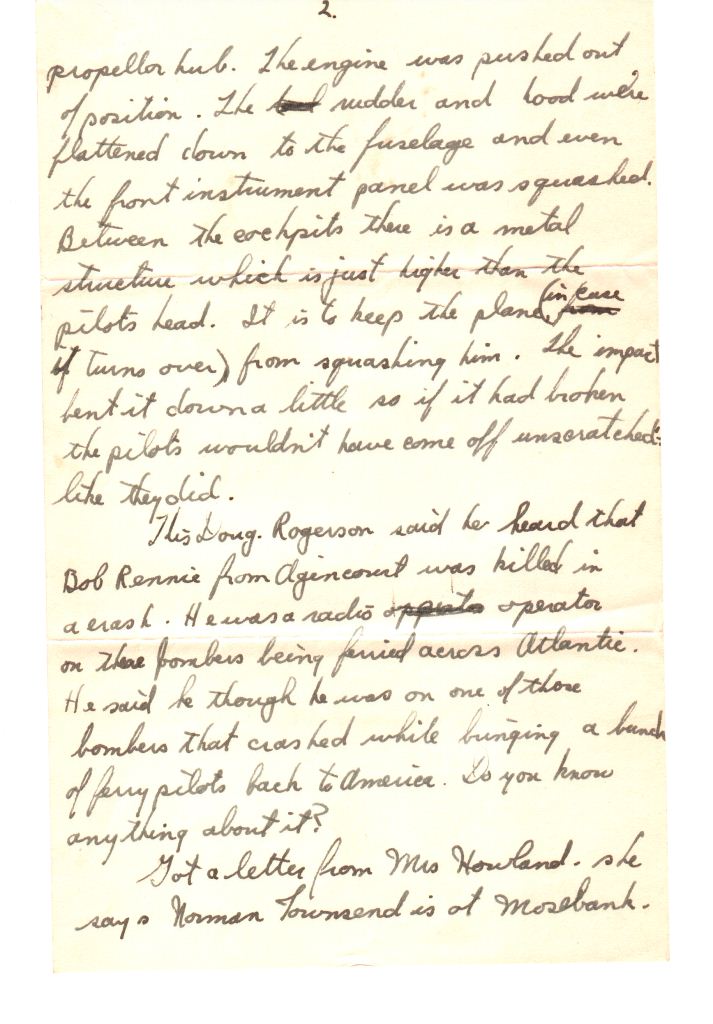 2.
propellor hub. The engine was pushed out
of position. The rudder and hood were
flattened down to the fuselage and even
the front instrument panel was squashed.
Between the cockpits there is a metal
structure which is just higher than the
pilots head. It is to keep the plane (in case
it turns over) from squashing him. The impact
bent it down a little so if it had broken
the pilots wouldn't have come off unscratched
like they did.
This Doug. Rogerson said he heard that
Bob Rennie from Agincourt was killed in
a crash. He was a radio operator
on these bombers being ferried across Atlantic.
He said he though he was on one of those
bombers that crashed while bringing a bunch
of ferry pilots back to America. Do you know
anything about it?
Got a letter from Mrs Howland. she
says Norman Townsend is at Mosebank.